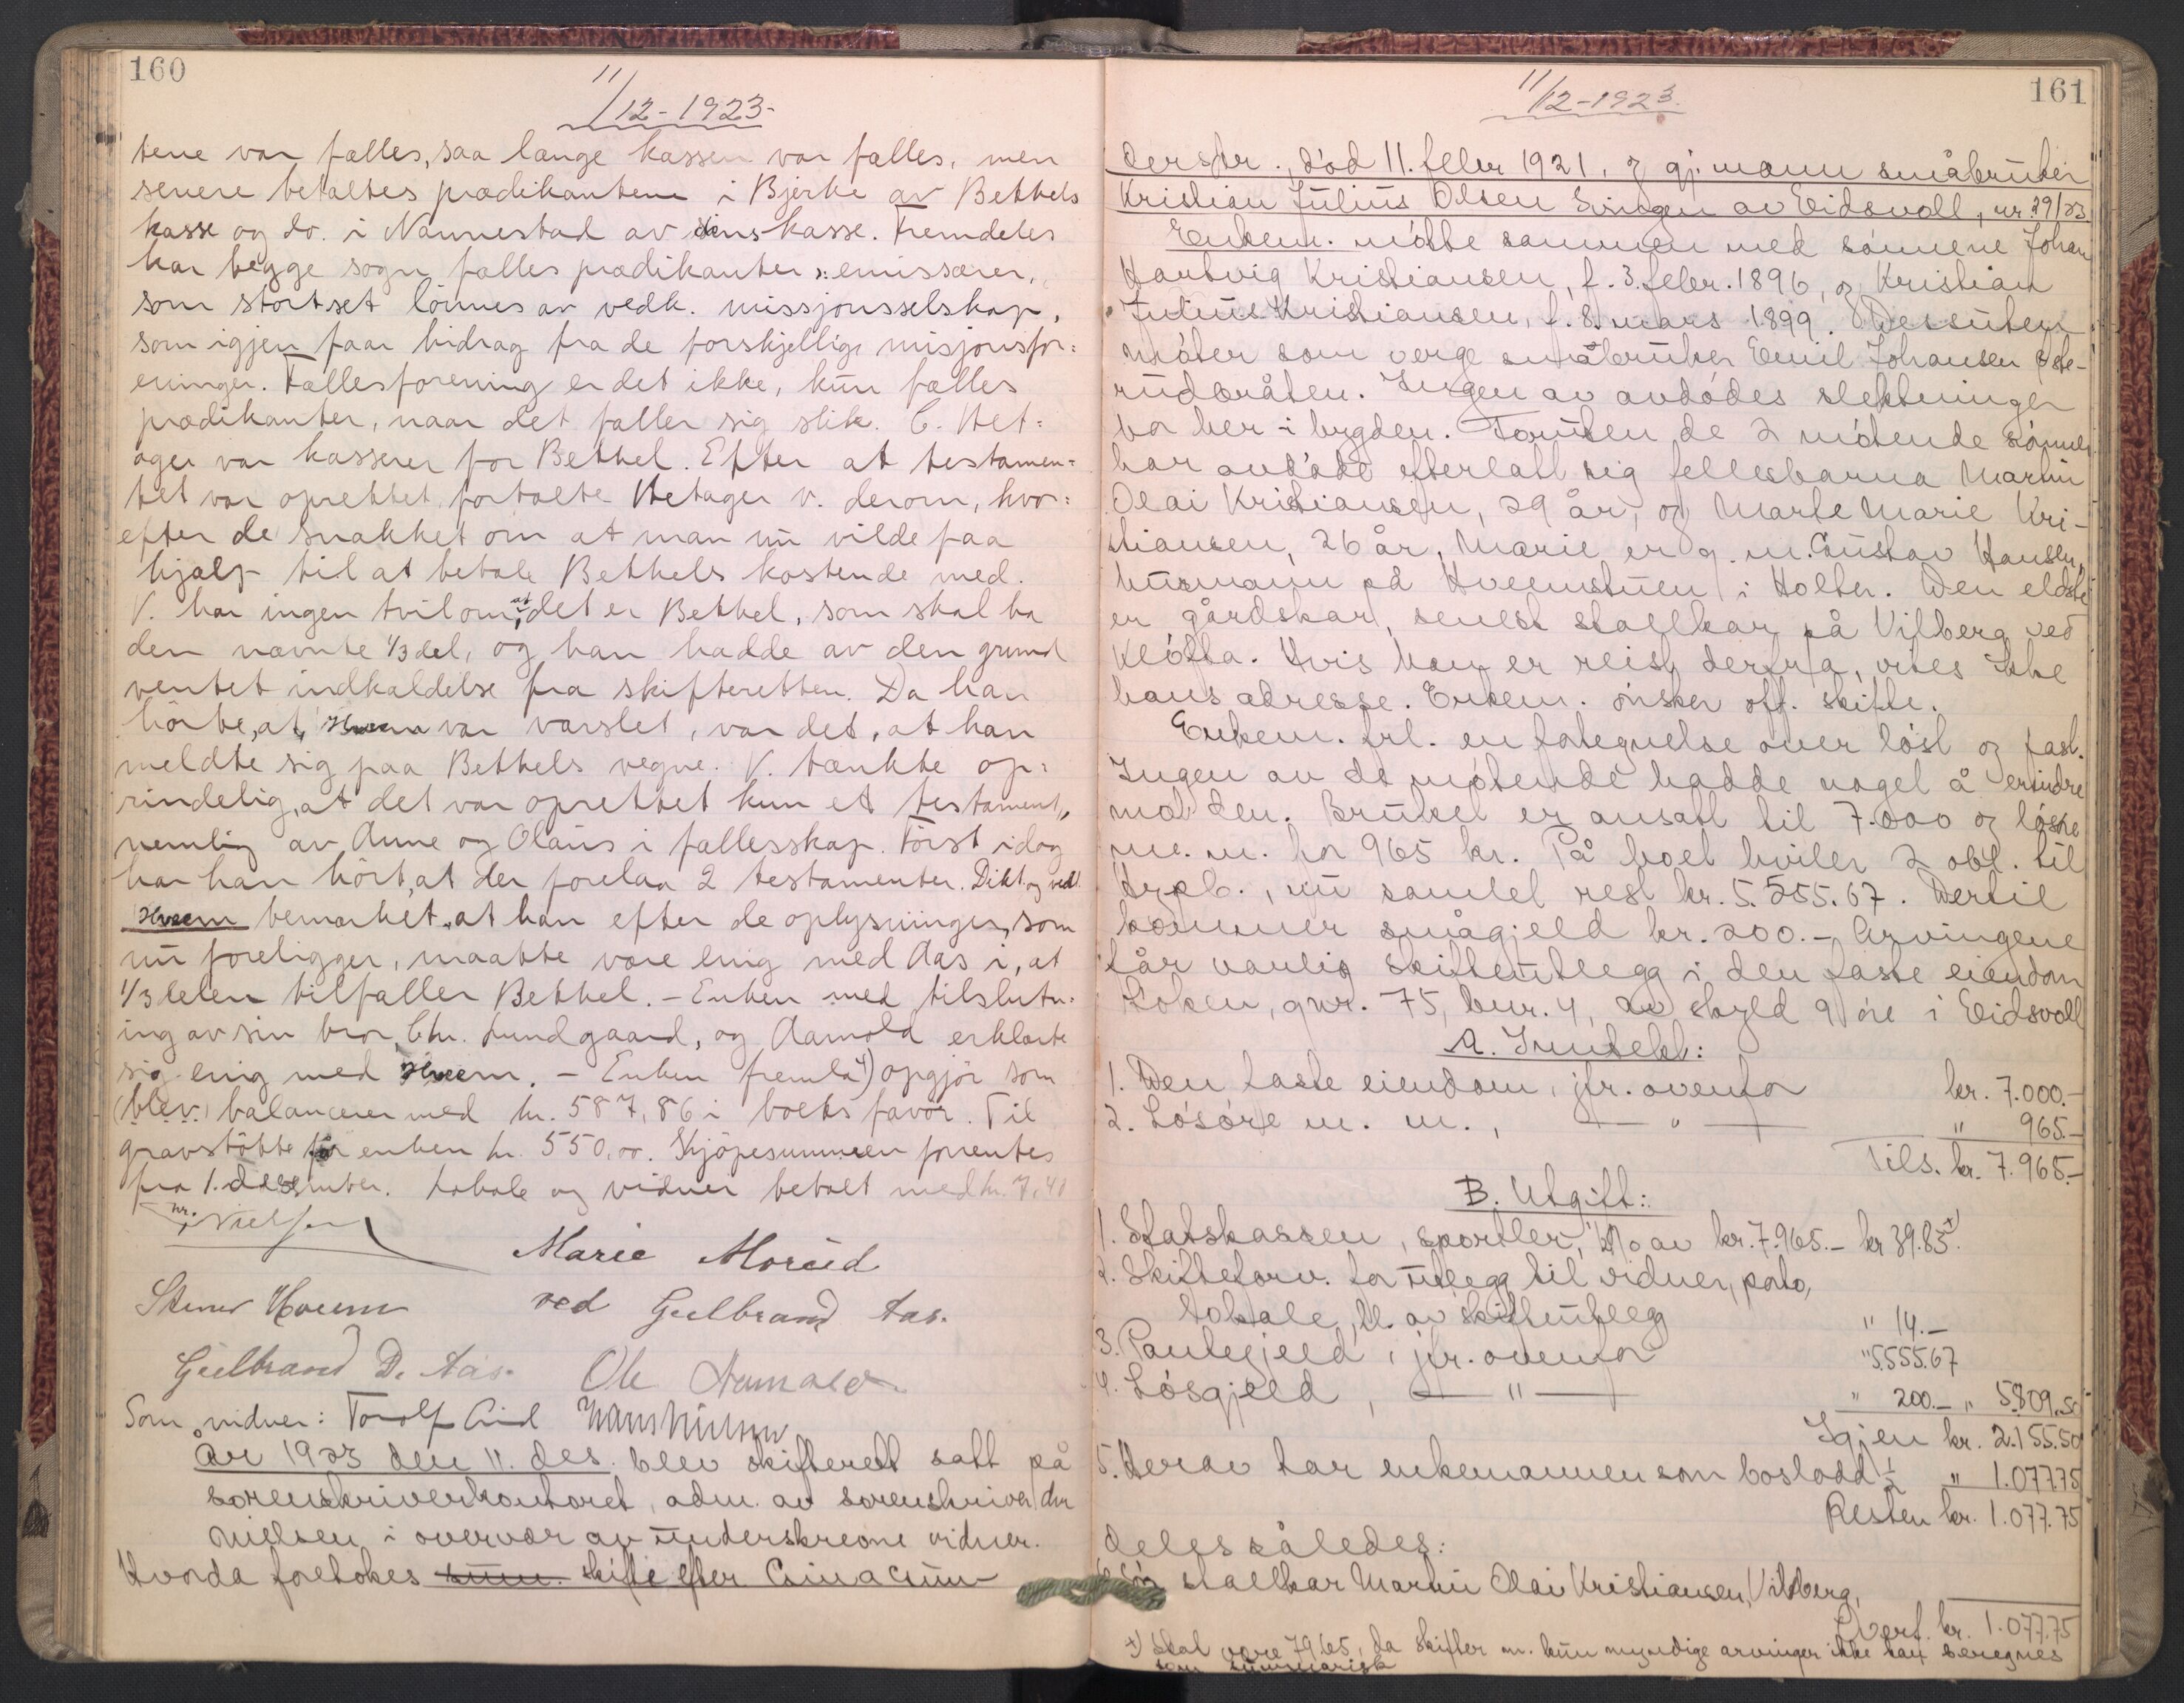 160
11/12-1923-
tene var fælles, saa længe kassen var fælles, men
senere betaltes prædikantene i Bjerke av Bethels
kasse og do. i Nannestad av dens kasse. Fremdeles
har begge sogn fælles prædikanter ɔ: emissærer,
som stort set lönnes av vedk. missjonsselskap,
som igjen faar bidrag fra de forskjellige misjonsfor=
eninger. Fællesforening er det ikke, kun fælles
prædikanter, naar det faller sig slik. C. Het=
ager var kasserer for Bethel. Efter at testamen=
tet var oprettet, fortalte Hetager v. derom, hvor=
efter de snakket om at man nu vilde faa
hjælp til at betale Bethels kostende med.
V. har ingen tvil om, at det er Bethel, som skal ha
den nævnte 1/3 del, og han hadde av den grund
ventet indkaldelse fra skifteretten. Da han
hörte, at Hveem var varslet, var det, at han
meldte sig paa Bethels vegne. V. tænkte op=
rindelig, at det var oprettet kun et testament,
nemlig av Anne og Olaus i fællesskap. Först idag
har han hört, at der forelaa 2 testamenter. Dikt. og vedt.
Hveem bemerket, at han efter de oplysninger, som
nu foreligger, maatte være enig med Aas i, at
1/3 delen tilfaller Bethel. - Enken med tilslutn=
ing av sin bror, Chr. Lundgaard, og Aamold erklærte
sig enig med Hveem. - Enken fremla opgjör som
(blev) balancerer med kr. 587,86 i boets favör. Til
gravstötte får enken kr. 550,00. Kjöpesummen forrentes
fra 1. desember. Lokale og vidner betalt med kr. 7,40
Nielsen
Marie Moreid
Stener Hveem ved Gulbrand Aas.
Gulbrand D. Aas. Ole Aamold
Som vidner: Torolf Hans
År 1923 den 11. des. blev skifterett satt på
sorenskriverkontoret, adm. av sorenskriver dr
Nielsen i overvær av underskrevne vidner.
Hvorda foretokes skifte efter
161
11/12-1923.
dersdr., död 11. febr 1921, g gj. mann småbruker
Kristian Julius Olsen Svingen av Eidsvoll, nr. 29/23.
Enkem. mötte sammen med sönnene Johan
Hartvig Kristiansen, f. 3. febr. 1896, og Kristian
Julius Kristiansen, f. 8. mars 1899. Dessuten
möter som verge småbruker Emil Johansen
rudbråten. Ingen av avdödes slektninger
bor her i bygden. Foruten de 2 mötende sönner
har avdöde efterlatt sig fellesbarna Martin
Olai Kristiansen, 29 år, og Marte Marie Kri-
stiansen, 26 år, Marie er g. m. Gustav Hansen,
husmann på Hveemstuen i Holter. Den eldste
er gårdskar, senest stallkar på Vilberg ved
Klöfta. Hvis han er reist derfra, vites ikke
hans adresse. Enkem. önsker off. skifte.
Enkem. frl. en fortegnelse over löst og fast.
Ingen av de mötende hadde noget å erindre
mot den. Bruket er ansatt til 7.000 og löske
m. m. for 965 kr. På boet hviler 2 obl. til
Hypb., nu samlet rest kr. 5.555.67. Dertil
kommer smågjeld kr. 200.- Arvingene
får vanlig skifteutlegg i den faste eiendom
Loken, gnr. 75, bnr. 4, av skyld 9 öre i Eidsvoll
A. Inntekt:
1. Den faste eiendom, jfr. ovenfor kr. 7.000.-
2. Lösöre m. m., — " — " 965.-
Tils. kr. 7.965.-
B. Utgift:
1. Statskassen, sportler, av kr. 7.965.- kr 39.83 x)
2. Skifteforv. for utlegg til vidner, porto,
lokale, tl. av skifteutlegg " 14.-
3. Pantegjeld, jfr. ovenfor " 5.555.67
4. Lösgjeld, — " — " 200.- " 5.809.50
Igjen kr. 2.155.50
5. Herav tar enkemannen som boslodd 1/2 " 1.077.75
Resten kr. 1.077.75
deles således:
stallkar Martin Olai Kristiansen, Vilberg,
Overf. kr. 1.077.75
x) Skal være 79.65, da skifter m. kun myndige arvinger ikke kan beregnes
som summarisk